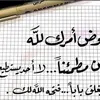 فوض أمرك لله
ن مطمئناً... لا أحد يستطيع
غلق باباً.. فتحه الله لك.